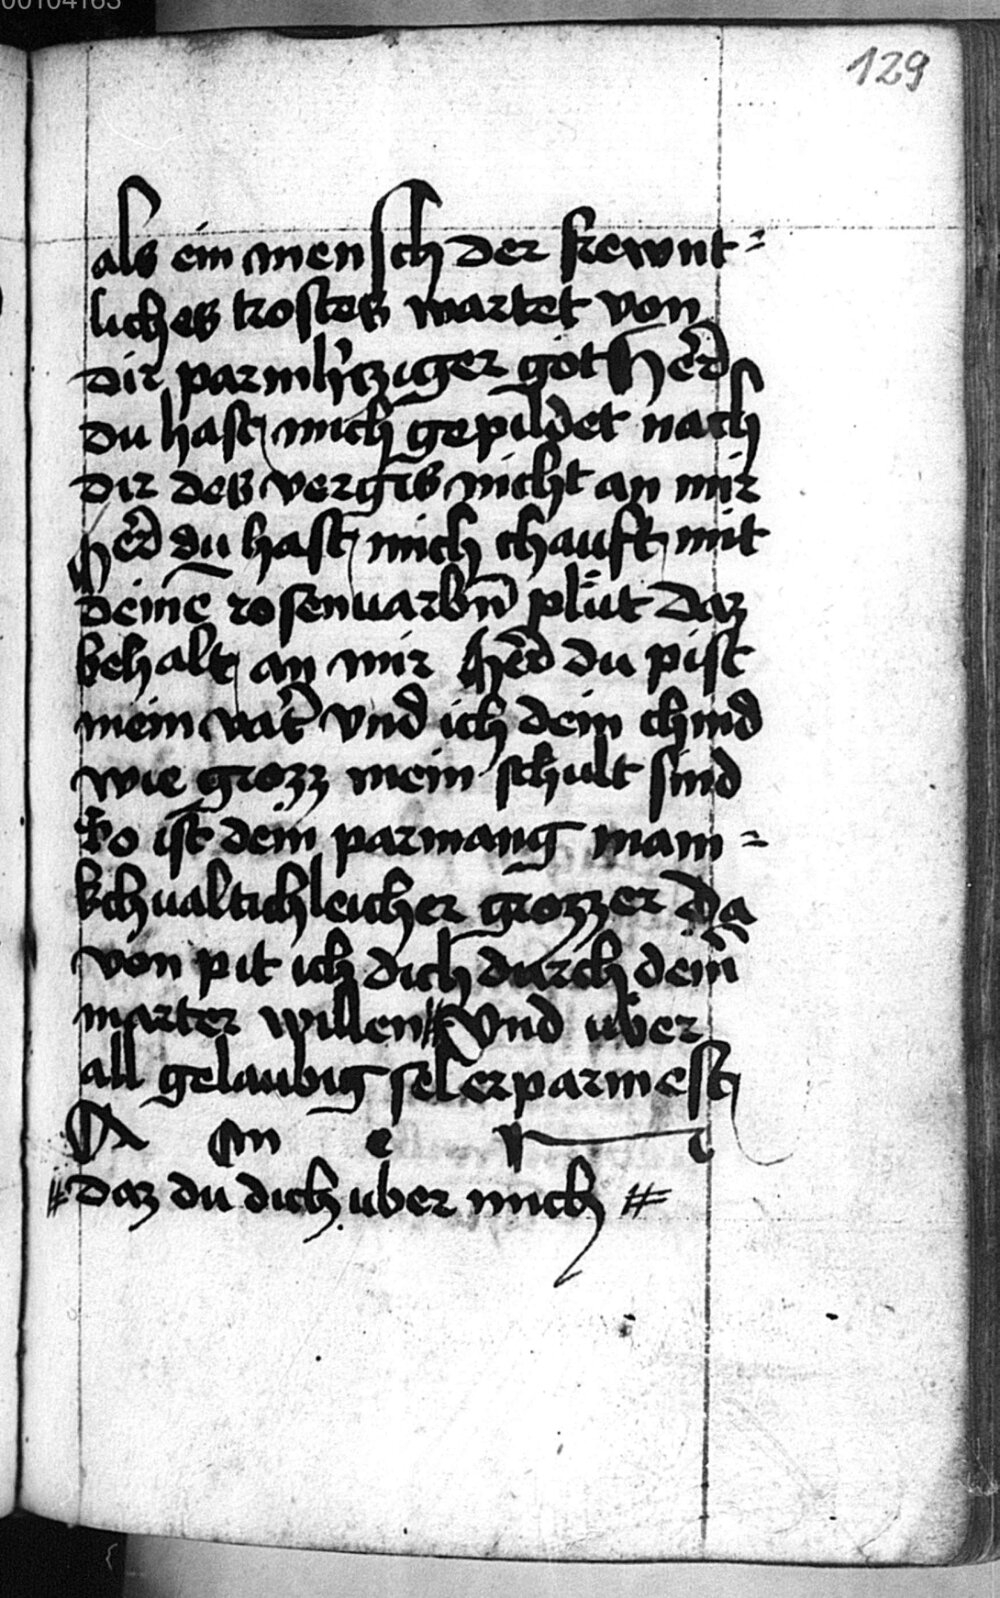 00104163
129
als ein mensch der frewnt=
liches trostes wartet von
dir parmh'cziger got Her̄d
du hast mich gepildet nach
dir des vergis nicht an mir
Her̄d du hast mich chauft mit
deine rosenuarbn̄ plüt daz
behalt an mir Her̄d du pist
mein vat' vnd ich dein chind
wie grozz mein schult sind
So ist dein parmang mani=
kchualtichleicher grozzer Da
von pit ich dich durch dein̄
marter willen # Vnd über
all gelaubig sel erparmest
A m e n
# daz du dich uber mich #